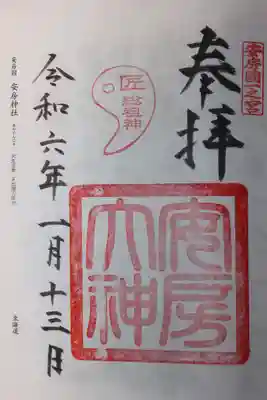 安房國一之宮
奉拝
匠
総祖神
安房大神
令和六年一月十三日
安房國 安房神社